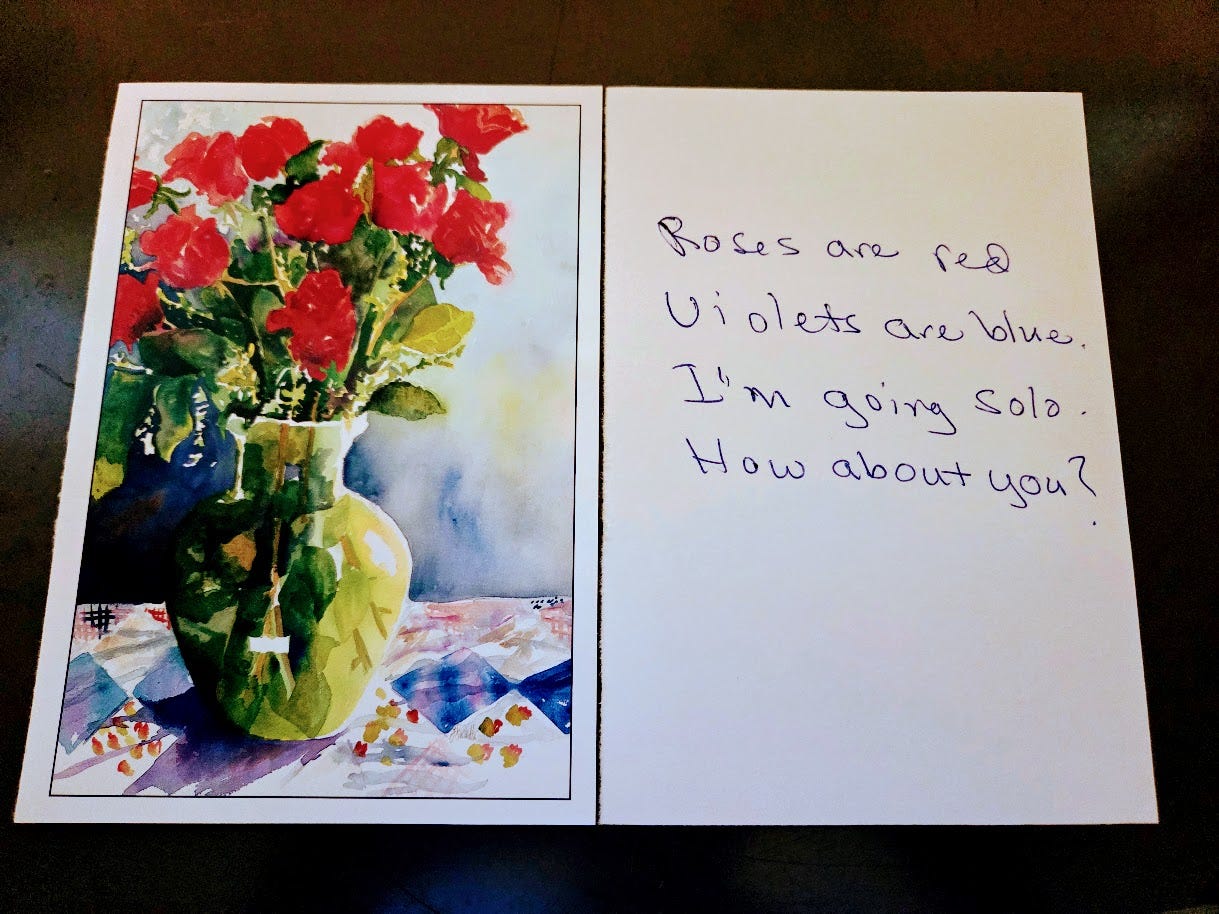 Roses are red
Violets are blue.
I'm going solo.
How about you?